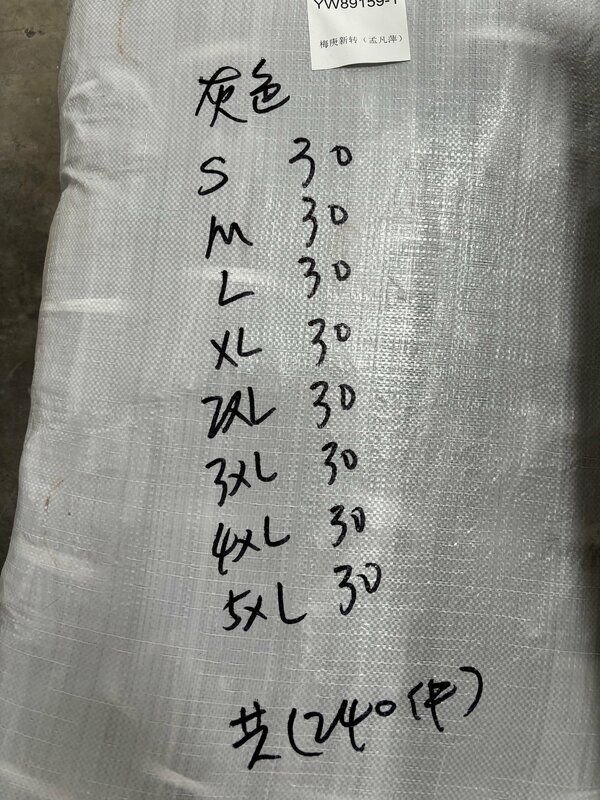 YW89159-1
梅庚新转（孟凡萍）
灰色
S 30
M 30
L 30
XL 30
2XL 30
3XL 30
4XL 30
5XL 30
共(240件)